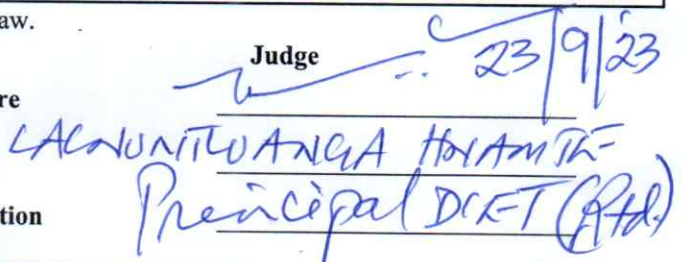 aw.
Judge
23/9/23
re
LALNUNTLUANGA HNAMTE
tion Principal DIET (Rtd.)